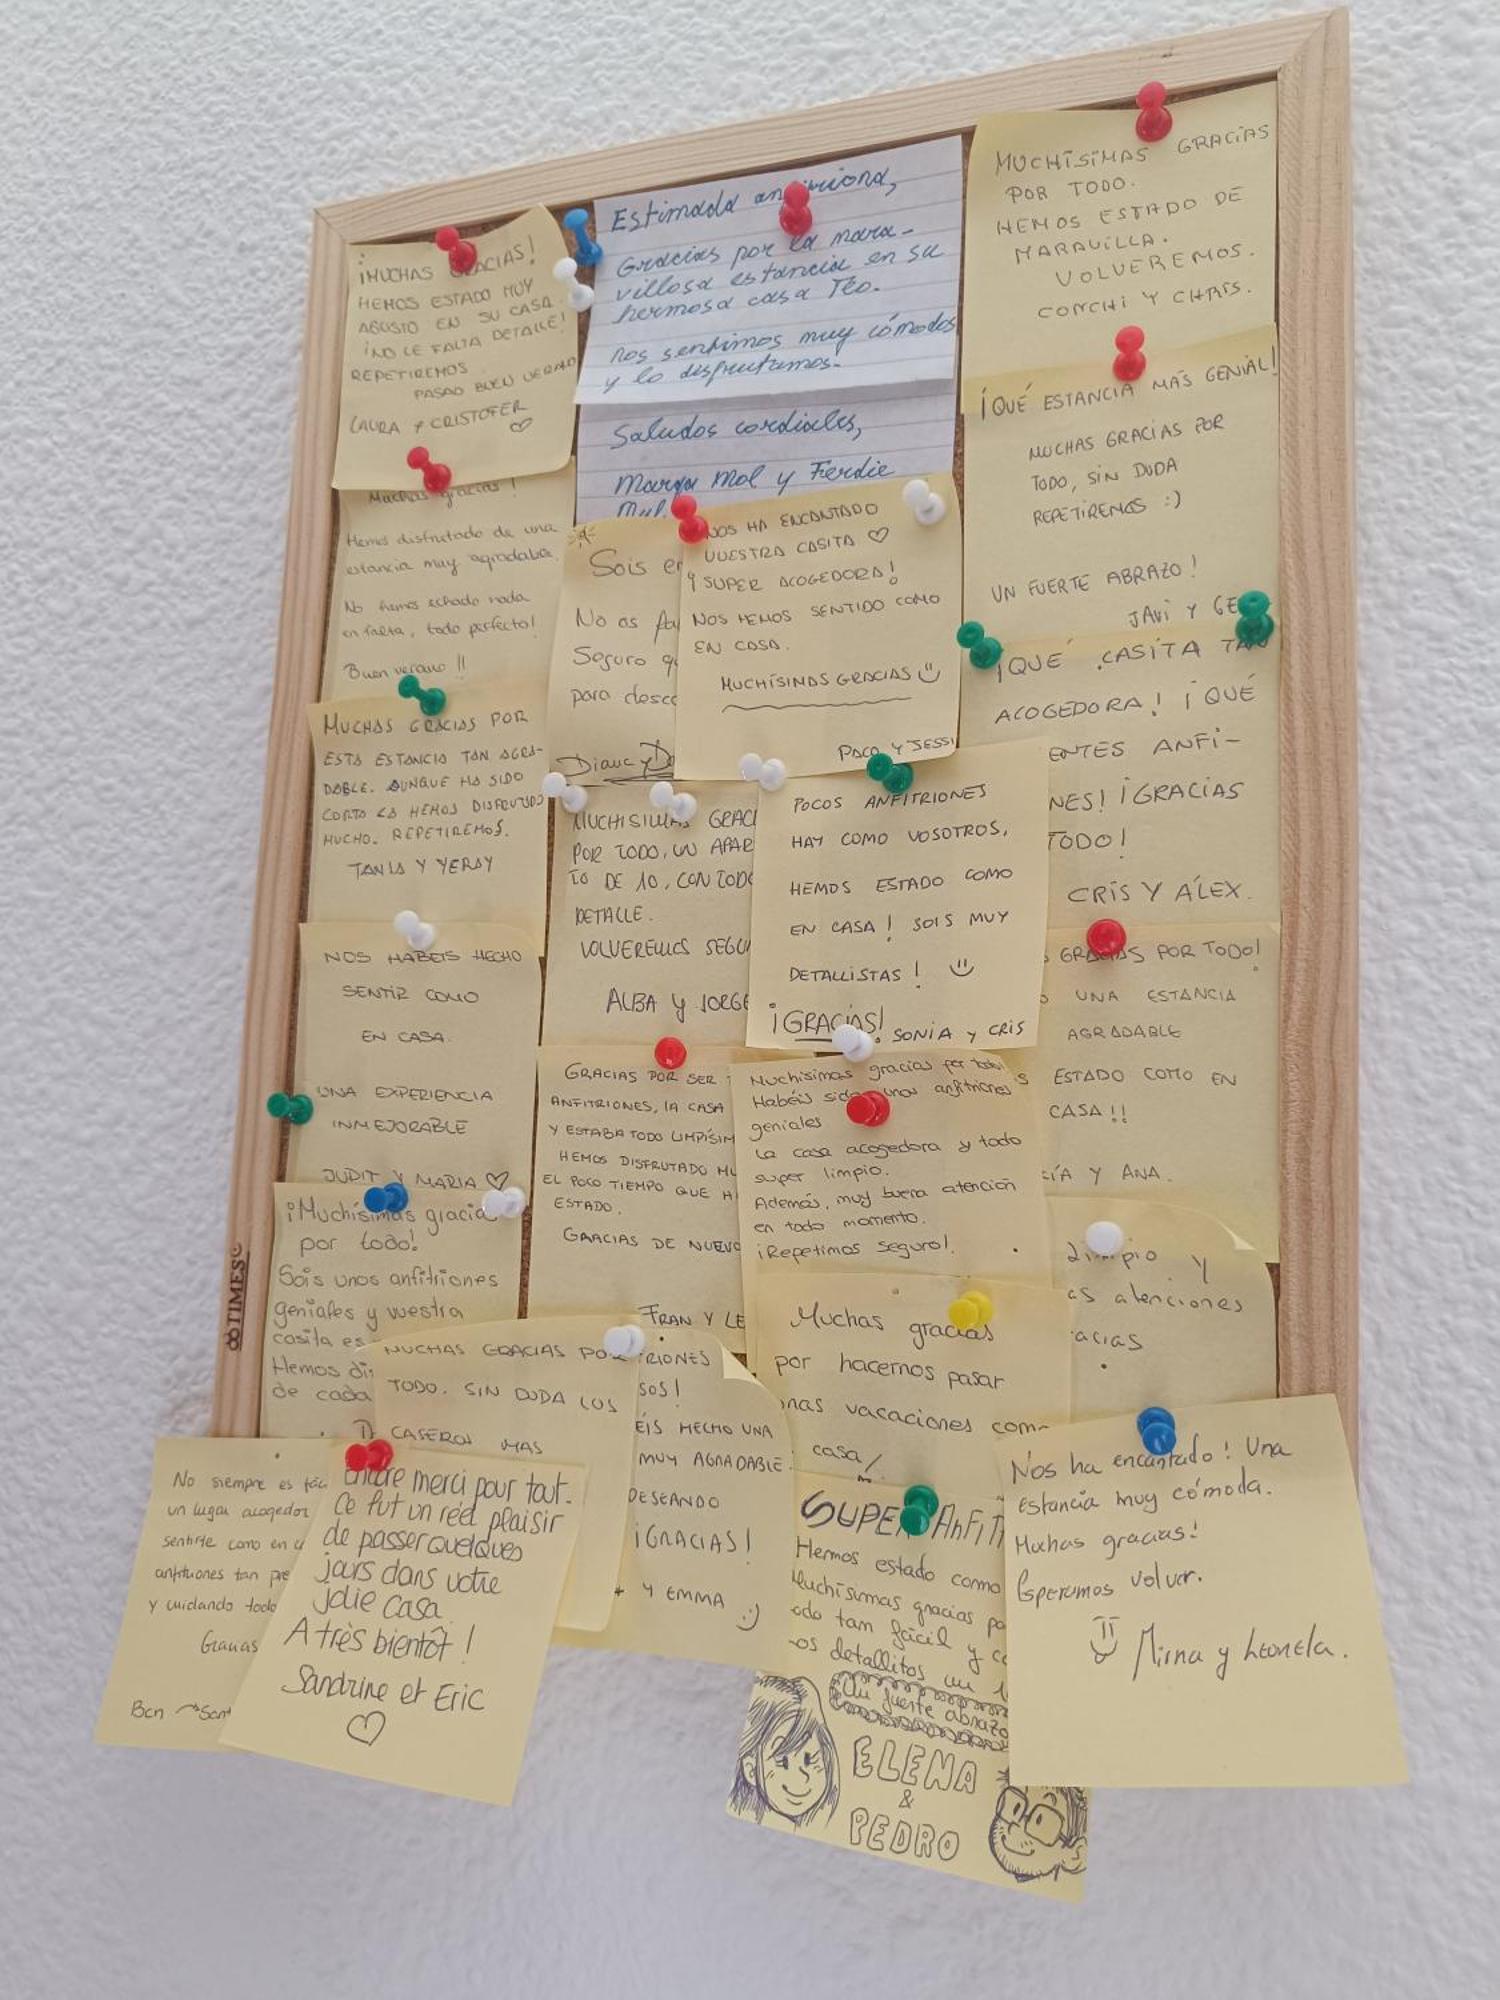 ¡MUCHAS GRACIAS!
HEMOS ESTADO MUY
AGUSTO EN SU CASA.
¡NO LE FALTA DETALLE!
REPETIREMOS.
PASAD BUEN VERANO
LAURA Y CRISTOFER
Muchas gracias!
Hemos disfrutado de una
estancia muy agradable.
No hemos echado nada
en falta, todo perfecto!
Buen verano!!
MUCHAS GRACIAS POR
ESTA ESTANCIA TAN AGRA-
DABLE. AUNQUE HA SIDO
CORTA LA HEMOS DISFRUTADO
MUCHO. REPETIREMOS.
TANIA Y YERAY
NOS HABEIS HECHO
SENTIR COMO
EN CASA.
UNA EXPERIENCIA
INMEJORABLE
JUDIT Y MARIA ♡
¡Muchísimas gracias
por todo!
Sois unos anfitriones
geniales y vuestra
casita es
Hemos di
de cada
No siempre es fác
un lugar acogedor
sentirte como en c
anfitriones tan pre
y cuidando todo
Gracias
Bcn → Sant
Encore merci pour tout.
Ce fut un réel plaisir
de passer quelques
jours dans votre
jolie casa
A très bientôt !
Sandrine et Eric
♡
MUCHAS GRACIAS POR
TODO. SIN DUDA LOS
CASEROS MAS
Estimada anfitriona,
Gracias por la mara-
villosa estancia en su
hermosa casa Teo.
nos sentimos muy cómodos
y lo disfrutamos.
Saludos cordiales,
Marga Mol y Ferdie
Mul.
Sois en
No os fa
Seguro q
para desca
Diana y D
NOS HA ENCANTADO
VUESTRA CASITA ♡
¡SUPER ACOGEDORA!
NOS HEMOS SENTIDO COMO
EN CASA.
MUCHÍSIMAS GRACIAS
PACO Y JESSI
MUCHISIMAS GRACI
POR TODO, UN APAR
TO DE 10, CON TODO
DETALLE.
VOLVEREMOS SEGU
ALBA Y JORGE
POCOS ANFITRIONES
HAY COMO VOSOTROS,
HEMOS ESTADO COMO
EN CASA! SOIS MUY
DETALLISTAS!
¡GRACIAS! SONIA Y CRIS
GRACIAS POR SER
ANFITRIONES, LA CASA
Y ESTABA TODO LIMPÍSIM
HEMOS DISFRUTADO MU
EL POCO TIEMPO QUE H
ESTADO.
GRACIAS DE NUEVO
FRAN Y LE
Muchísimas gracias por todo!
Habéis sido unos anfitriones
geniales
La casa acogedora y todo
super limpio.
Además, muy buena atención
en todo momento.
¡Repetimos seguro!
TRIONES
SOS!
ÉIS HECHO UNA
MUY AGRADABLE.
DESEANDO
¡GRACIAS!
Y EMMA :)
Muchas gracias
por hacernos pasar
unas vacaciones com-
casa!
SUPER ANFIT
Hemos estado como
Muchísimas gracias po
odo tan fácil y co
os detallitos
Un fuerte abrazo
ELENA
&
PEDRO
MUCHÍSIMAS GRACIAS
POR TODO.
HEMOS ESTADO DE
MARAVILLA.
VOLVEREMOS.
CONCHI Y CHRIS.
¡QUÉ ESTANCIA MÁS GENIAL!
MUCHAS GRACIAS POR
TODO, SIN DUDA
REPETIREMOS :)
UN FUERTE ABRAZO!
JAVI Y GE
¡QUÉ CASITA TAN
ACOGEDORA! ¡QUÉ
ENTES ANFI-
NES! ¡GRACIAS
TODO!
CRIS Y ÁLEX.
GRACIAS POR TODO!
UNA ESTANCIA
AGRADABLE
ESTADO COMO EN
CASA!!
ÍA Y ANA.
Limpio y
as atenciones
acias
Nos ha encantado! Una
estancia muy cómoda.
Muchas gracias!
Esperamos volver.
Mirna y Leonela.
TIMES